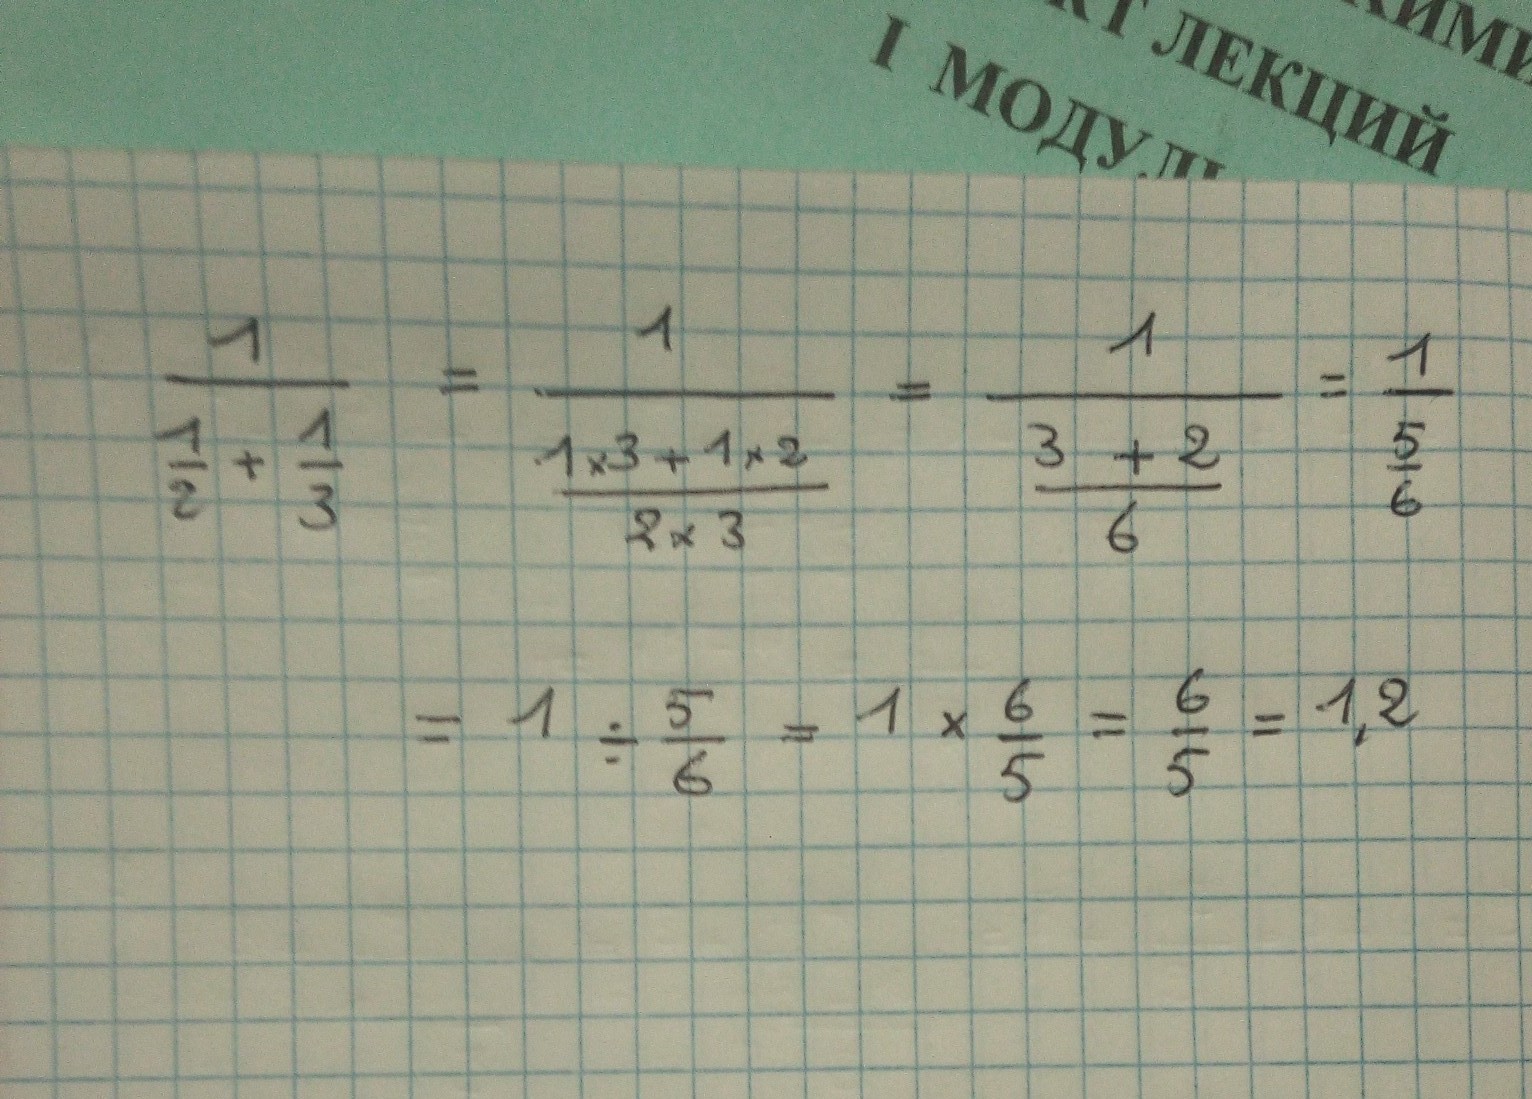 КИМИ
КТ ЛЕКЦИЙ
I МОДУЛЬ
1/(1/2 + 1/3) = 1/((1×3+1×2)/(2×3)) = 1/((3 + 2)/6) = 1/(5/6)
= 1 ÷ 5/6 = 1 × 6/5 = 6/5 = 1,2